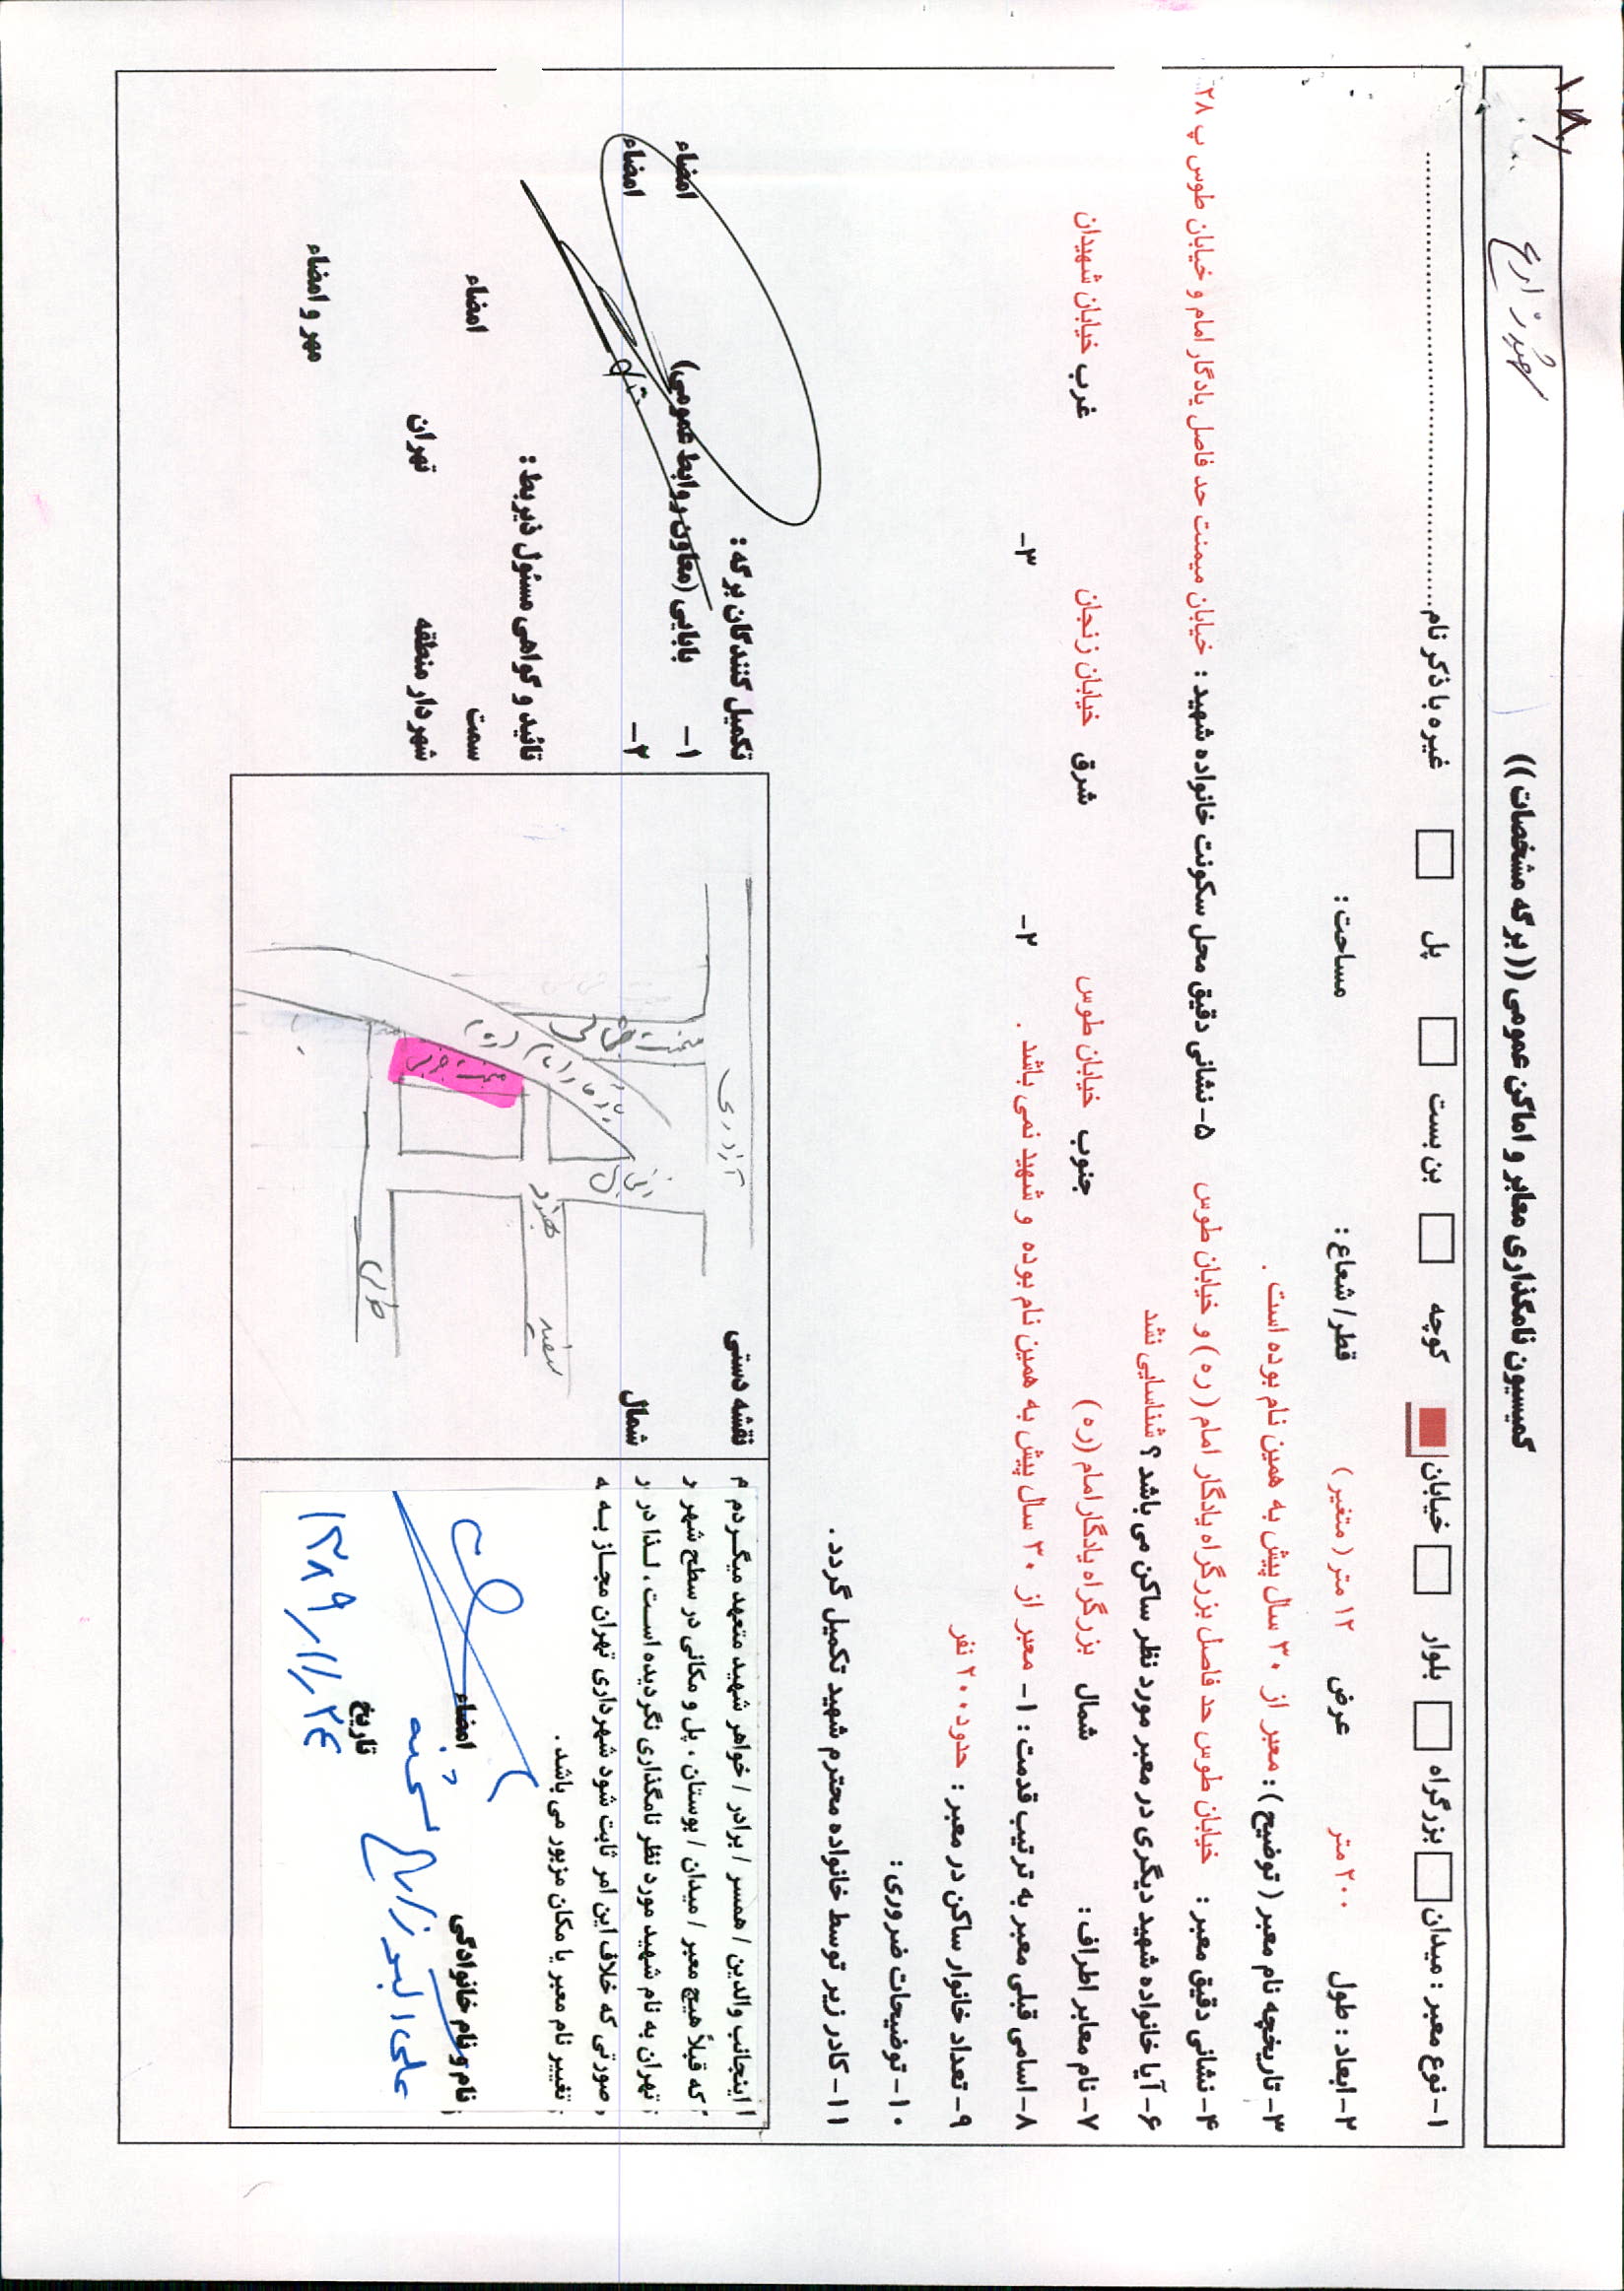 کمیسیون نامگذاری معابر و اماکن عمومی (( برگه مشخصات ))
۱- نوع معبر : میدان □ بزرگراه □ بلوار □ خیابان ■ کوچه □ بن بست □ پل □ غیره با ذکر نام ........................................
۲- ابعاد : طول ۲۰۰ متر عرض ۱۲ متر ( متغیر ) قطر/ شعاع : مساحت :
۳- تاریخچه نام معبر ( توضیح ) : معبر از ۳۰ سال پیش به همین نام بوده است .
۴- نشانی دقیق معبر : خیابان طوس حد فاصل بزرگراه یادگار امام ( ره ) و خیابان طوس ۵- نشانی دقیق محل سکونت خانواده شهید : خیابان میمنت حد فاصل یادگار امام و خیابان طوس پ ۲۸
۶- آیا خانواده شهید دیگری در معبر مورد نظر ساکن می باشد ؟ شناسایی نشد
۷- نام معابر اطراف : شمال بزرگراه یادگار امام ( ره ) جنوب خیابان طوس شرق خیابان زنجان غرب خیابان شهیدان
۸- اسامی قبلی معبر به ترتیب قدمت : ۱- معبر از ۳۰ سال پیش به همین نام بوده و شهید نمی باشد . ۲- ۳-
۹- تعداد خانوار ساکن در معبر : حدود ۲۰۰ نفر
۱۰- توضیحات ضروری :
۱۱- کادر زیر توسط خانواده محترم شهید تکمیل گردد .
اینجانب والدین / همسر / برادر / خواهر شهید متعهد میگردم
که قبلاً هیچ معبر / میدان / بوستان ، پل و مکانی در سطح شهر
تهران به نام شهید مورد نظر نامگذاری نگردیده است ، لذا در
صورتی که خلاف این امر ثابت شود شهرداری تهران مجاز به
تغییر نام معبر یا مکان مزبور می باشد .
نام و نام خانوادگی امضاء
علی اکبر
تاریخ
۱۳۸۹/۱/۲۴
نقشه دستی
شمال
آزادی
میمنت شمالی
یادگار امام (ره)
میمنت غربی
زنجان
طوس
تکمیل کنندگان برگه :
۱- بابایی (معاون روابط عمومی) امضاء
۲- امضاء
تائید و گواهی مسئول ذیربط :
سمت امضاء
شهردار منطقه تهران
مهر و امضاء